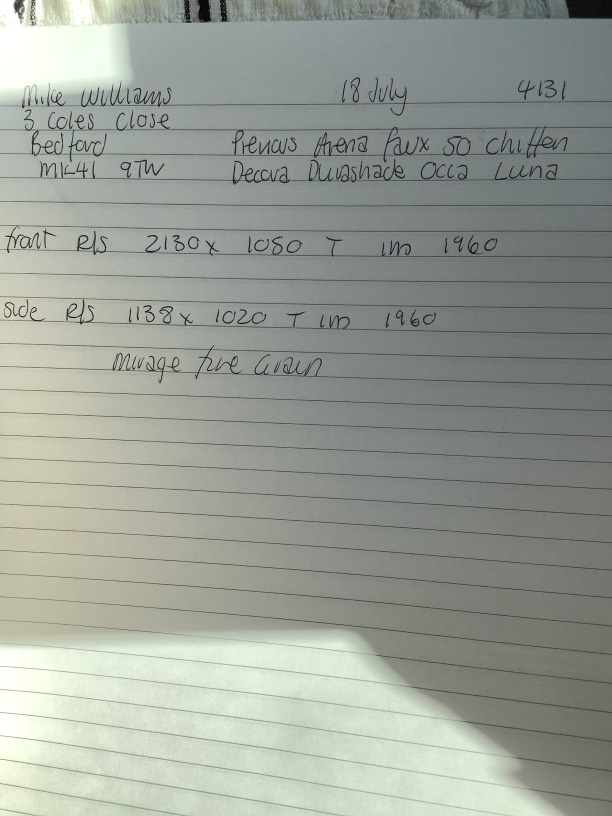 Mike Williams 18 July 4131
3 Coles Close
Bedford Arena faux 50 chiffon
MK41 9TW Decora Durashade Occa Luna
front R/S 2130 x 1050 T 1m 1960
side R/S 1138 x 1020 T 1m 1960
mirage fine Grain